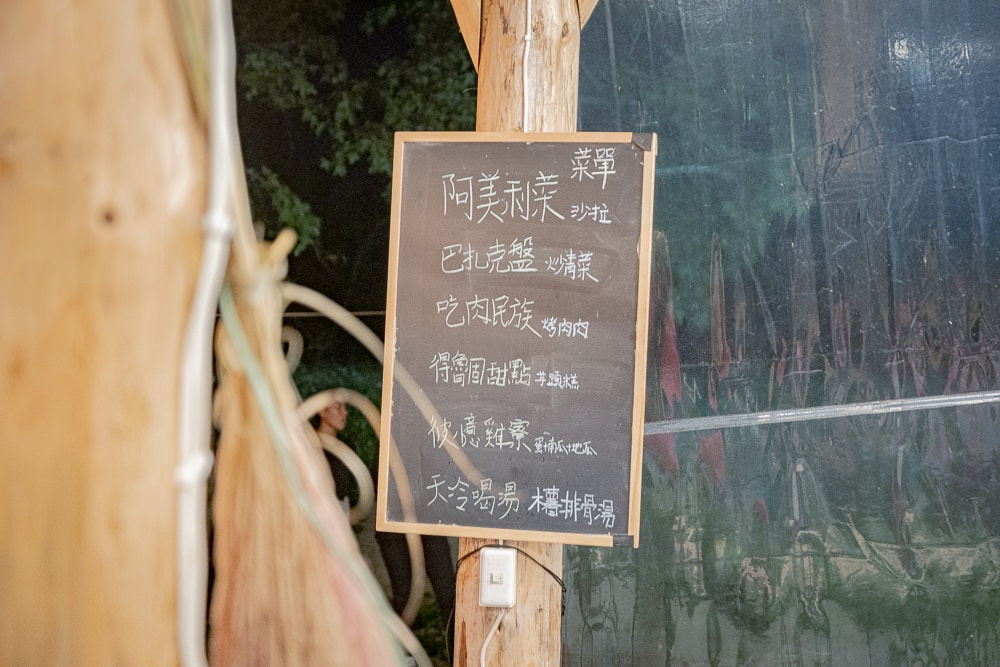 菜單
阿美利菜 沙拉
巴扎克盤 炒青菜
吃肉民族 烤肉肉
得魯固甜點 芋頭糕
彼憶雞寮 蛋+南瓜+地瓜
天冷喝湯 排骨湯